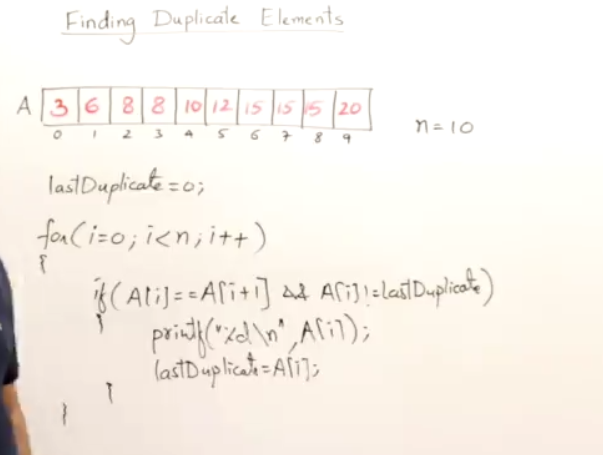 Finding Duplicate Elements
A 3 6 8 8 10 12 15 15 15 20
0 1 2 3 4 5 6 7 8 9
n=10
lastDuplicate=0;
for(i=0; i<n; i++)
{
if(A[i]==A[i+1] && A[i]!=lastDuplicate)
{
printf("%d\n", A[i]);
lastDuplicate=A[i];
}
}